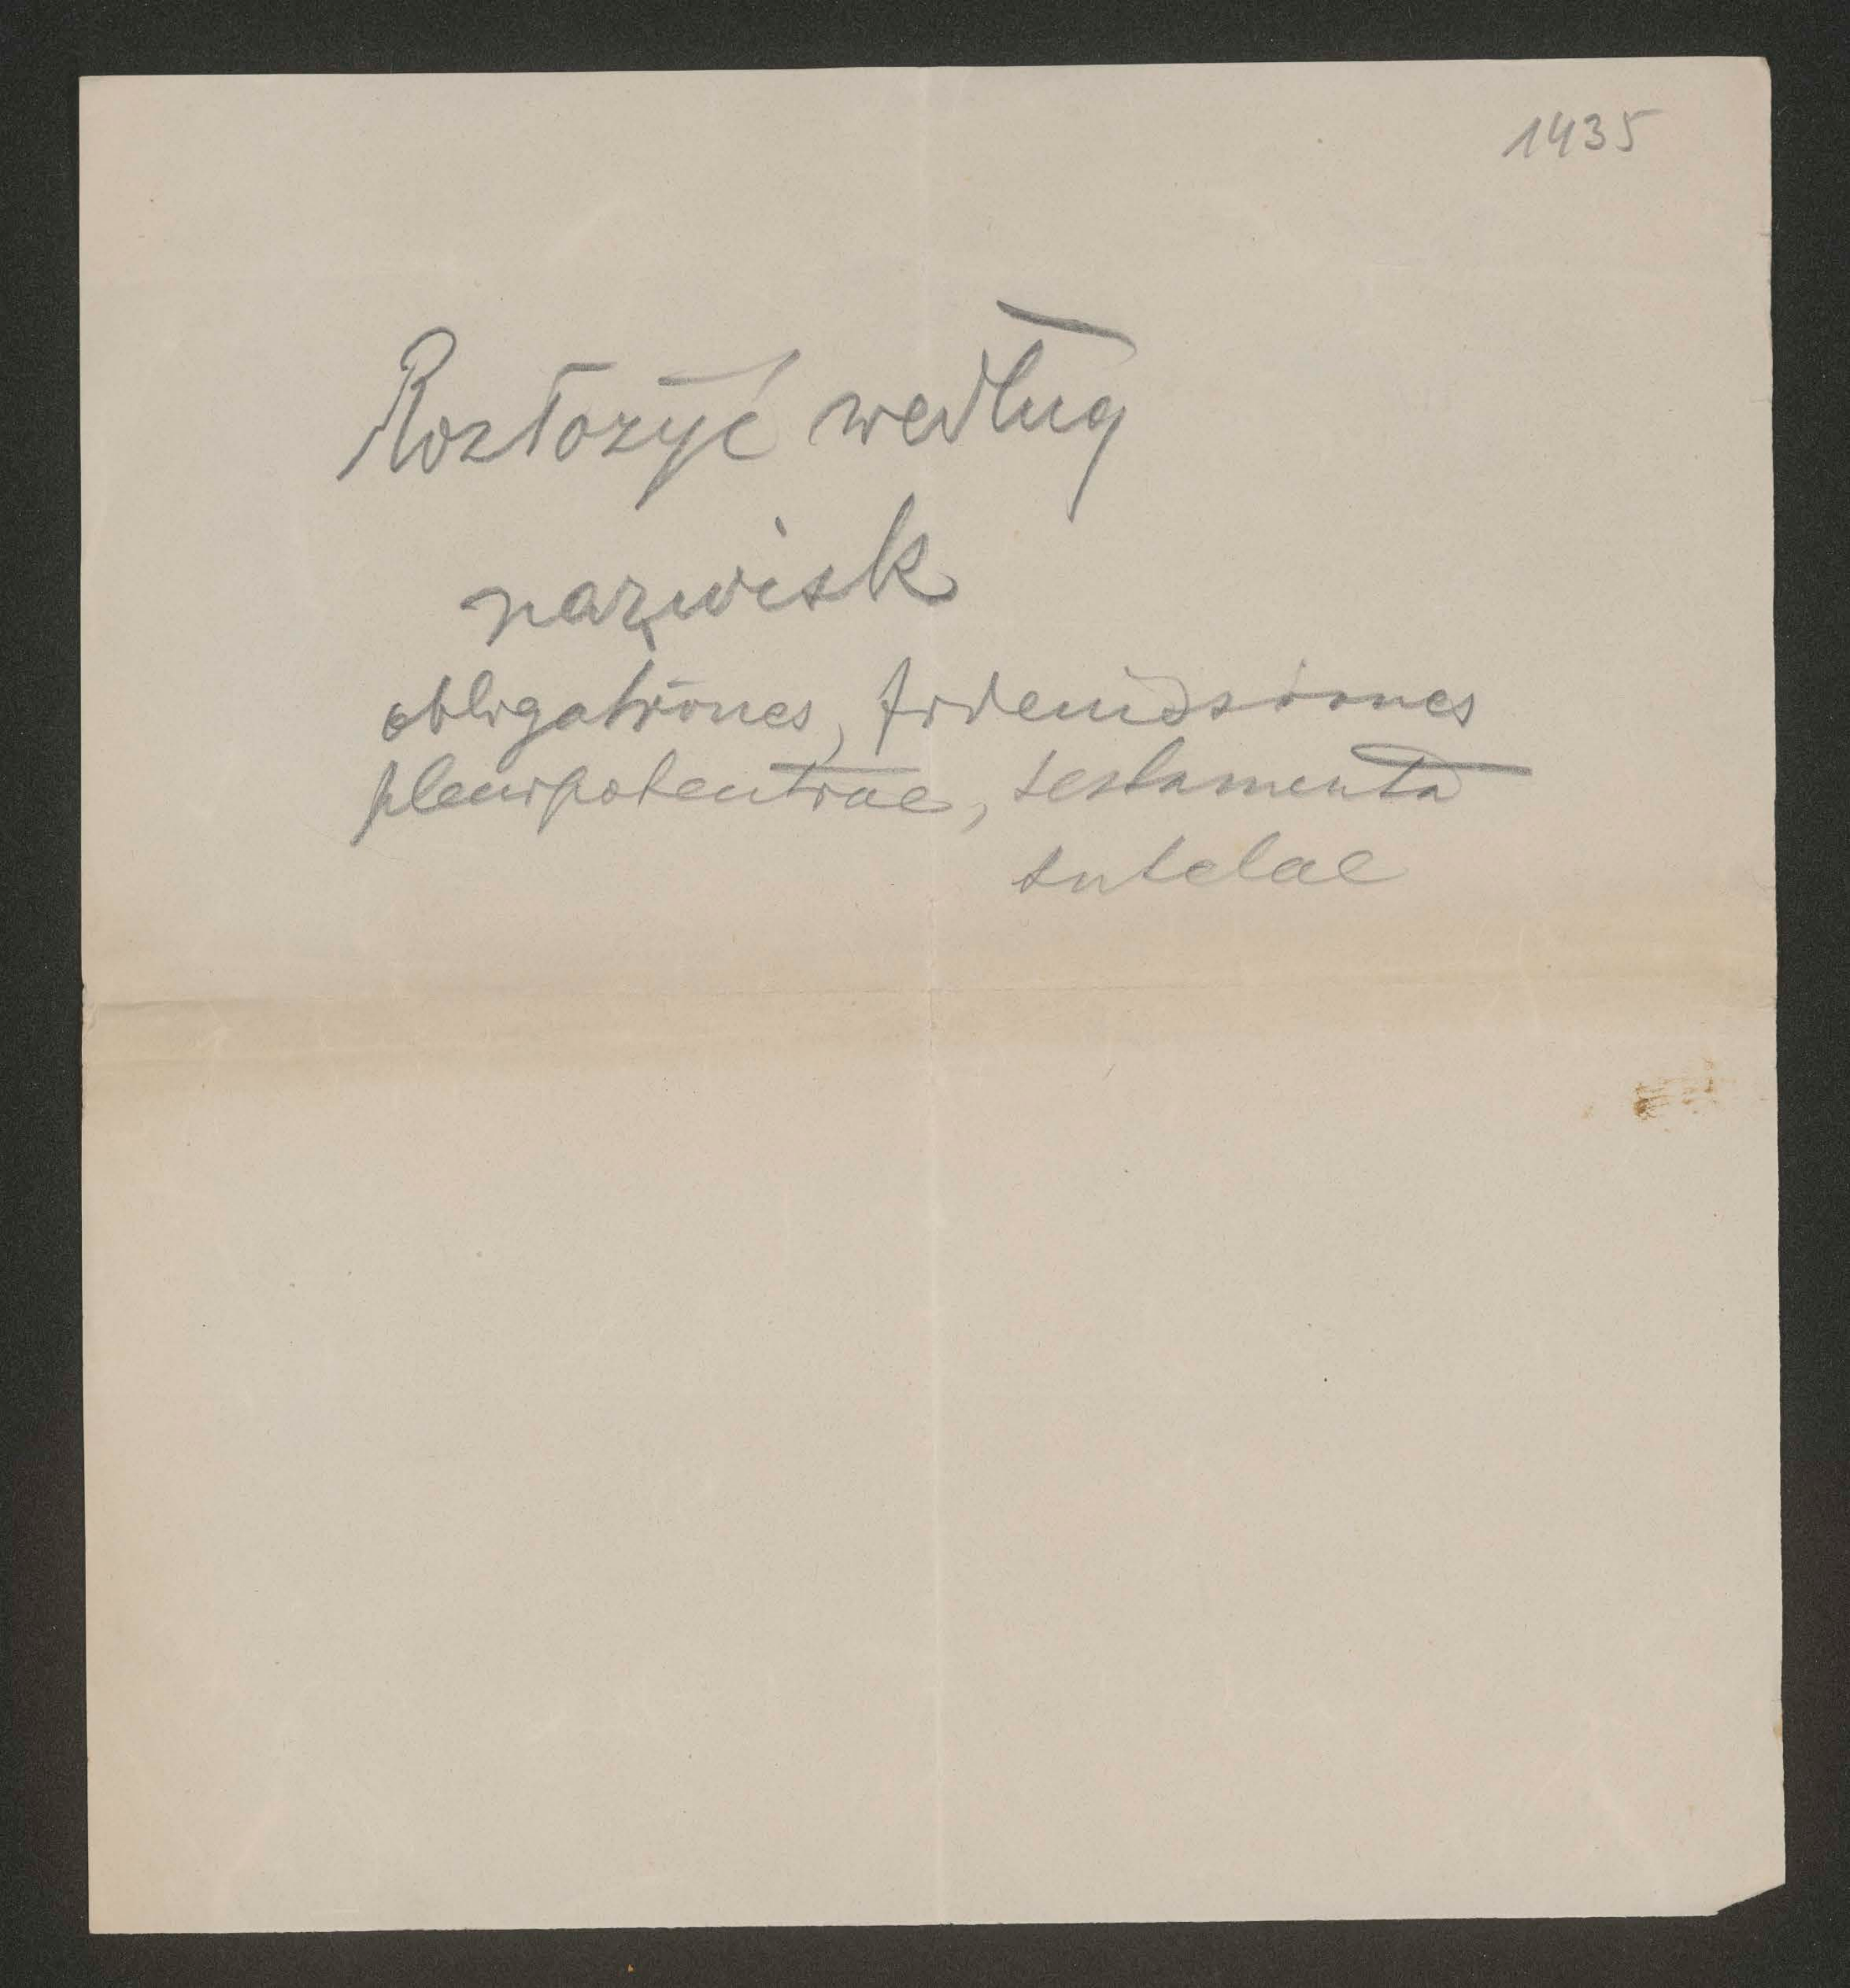 1435
Rozłożyć według
nazwisk
obligationes, fideiussiones
plenipotentiae, testamenta
tutelae